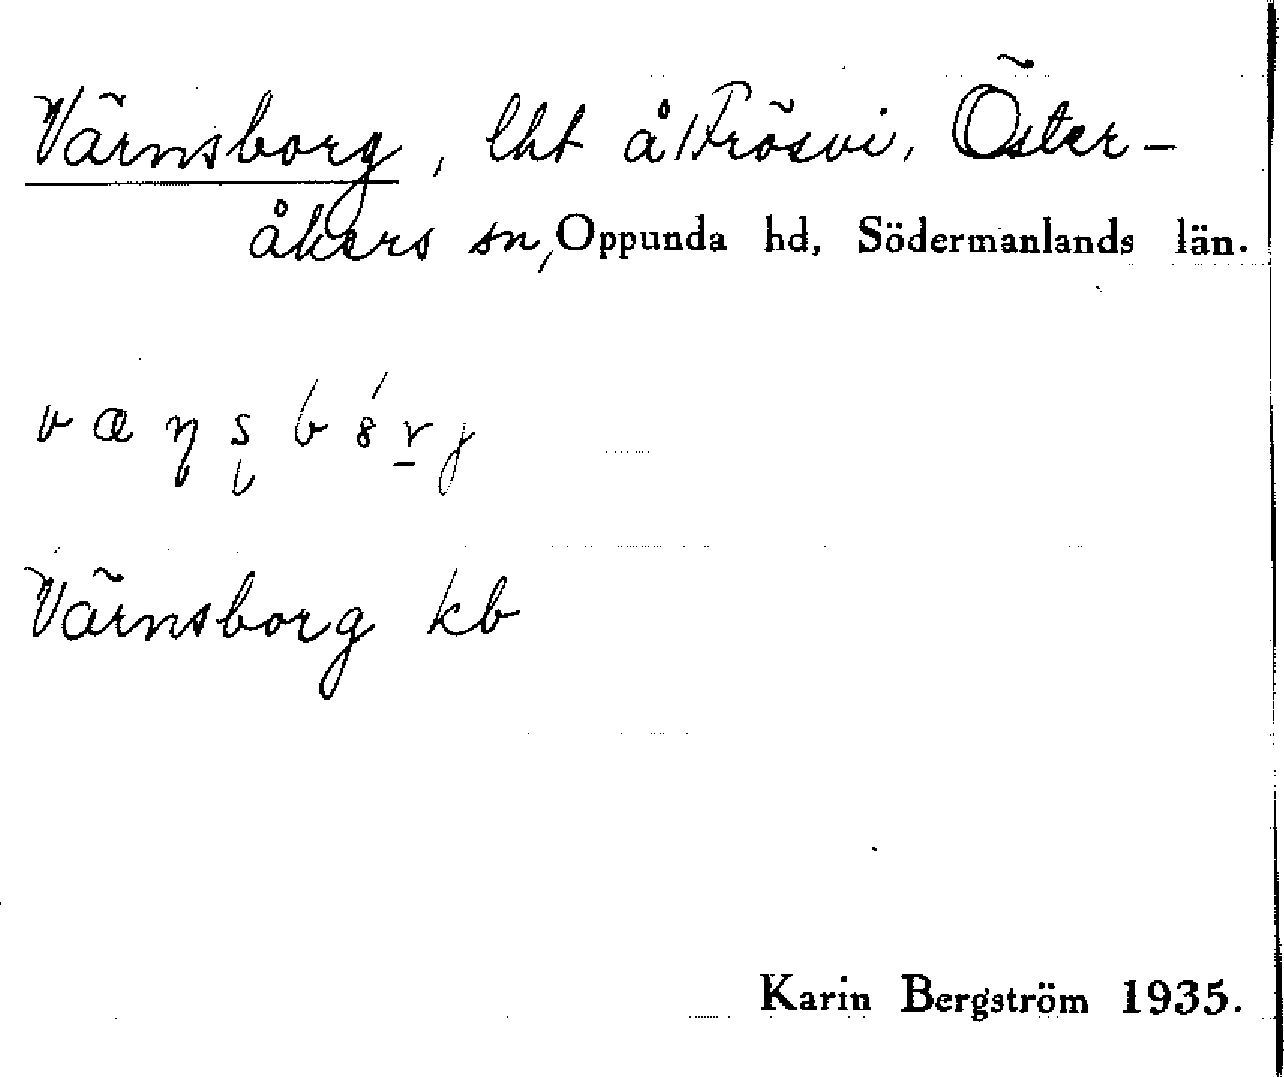 Värnsborg, lht å Frösvi, Öster-
åkers sn, Oppunda hd, Södermanlands län.
Värnsborg kb
Karin Bergström 1935.